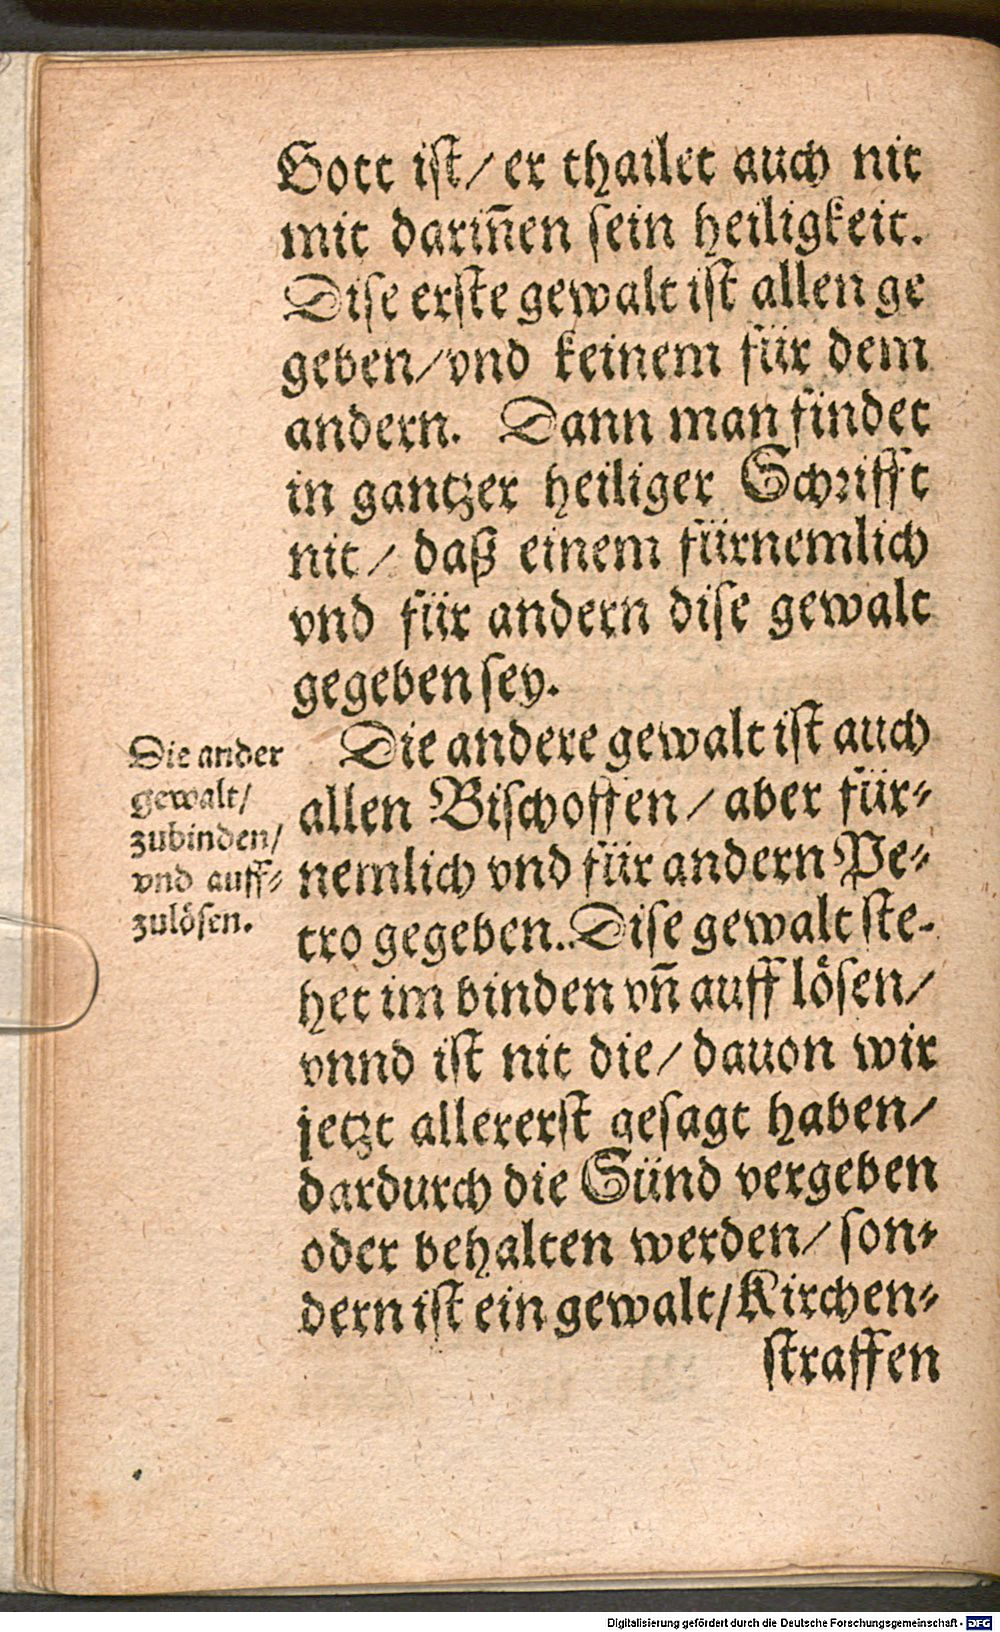 Gott ist/ er thailet auch nit
mit dariñen sein heiligkeit.
Dise erste gewalt ist allen ge
geben/ vnd keinem für dem
andern. Dann man findet
in gantzer heiliger Schrifft
nit/ daß einem fürnemlich
vnd für andern dise gewalt
gegeben sey.
Die ander
gewalt/
zubinden/
vnd auff-
zulösen.
Die andere gewalt ist auch
allen Bischoffen/ aber für-
nemlich vnd für andern Pe-
tro gegeben. Dise gewalt ste-
het im binden vñ auff lösen/
vnnd ist nit die/ dauon wir
jetzt allererst gesagt haben/
dardurch die Sünd vergeben
oder behalten werden/ son-
dern ist ein gewalt/ Kirchen-
straffen
Digitalisierung gefördert durch die Deutsche Forschungsgemeinschaft - DFG